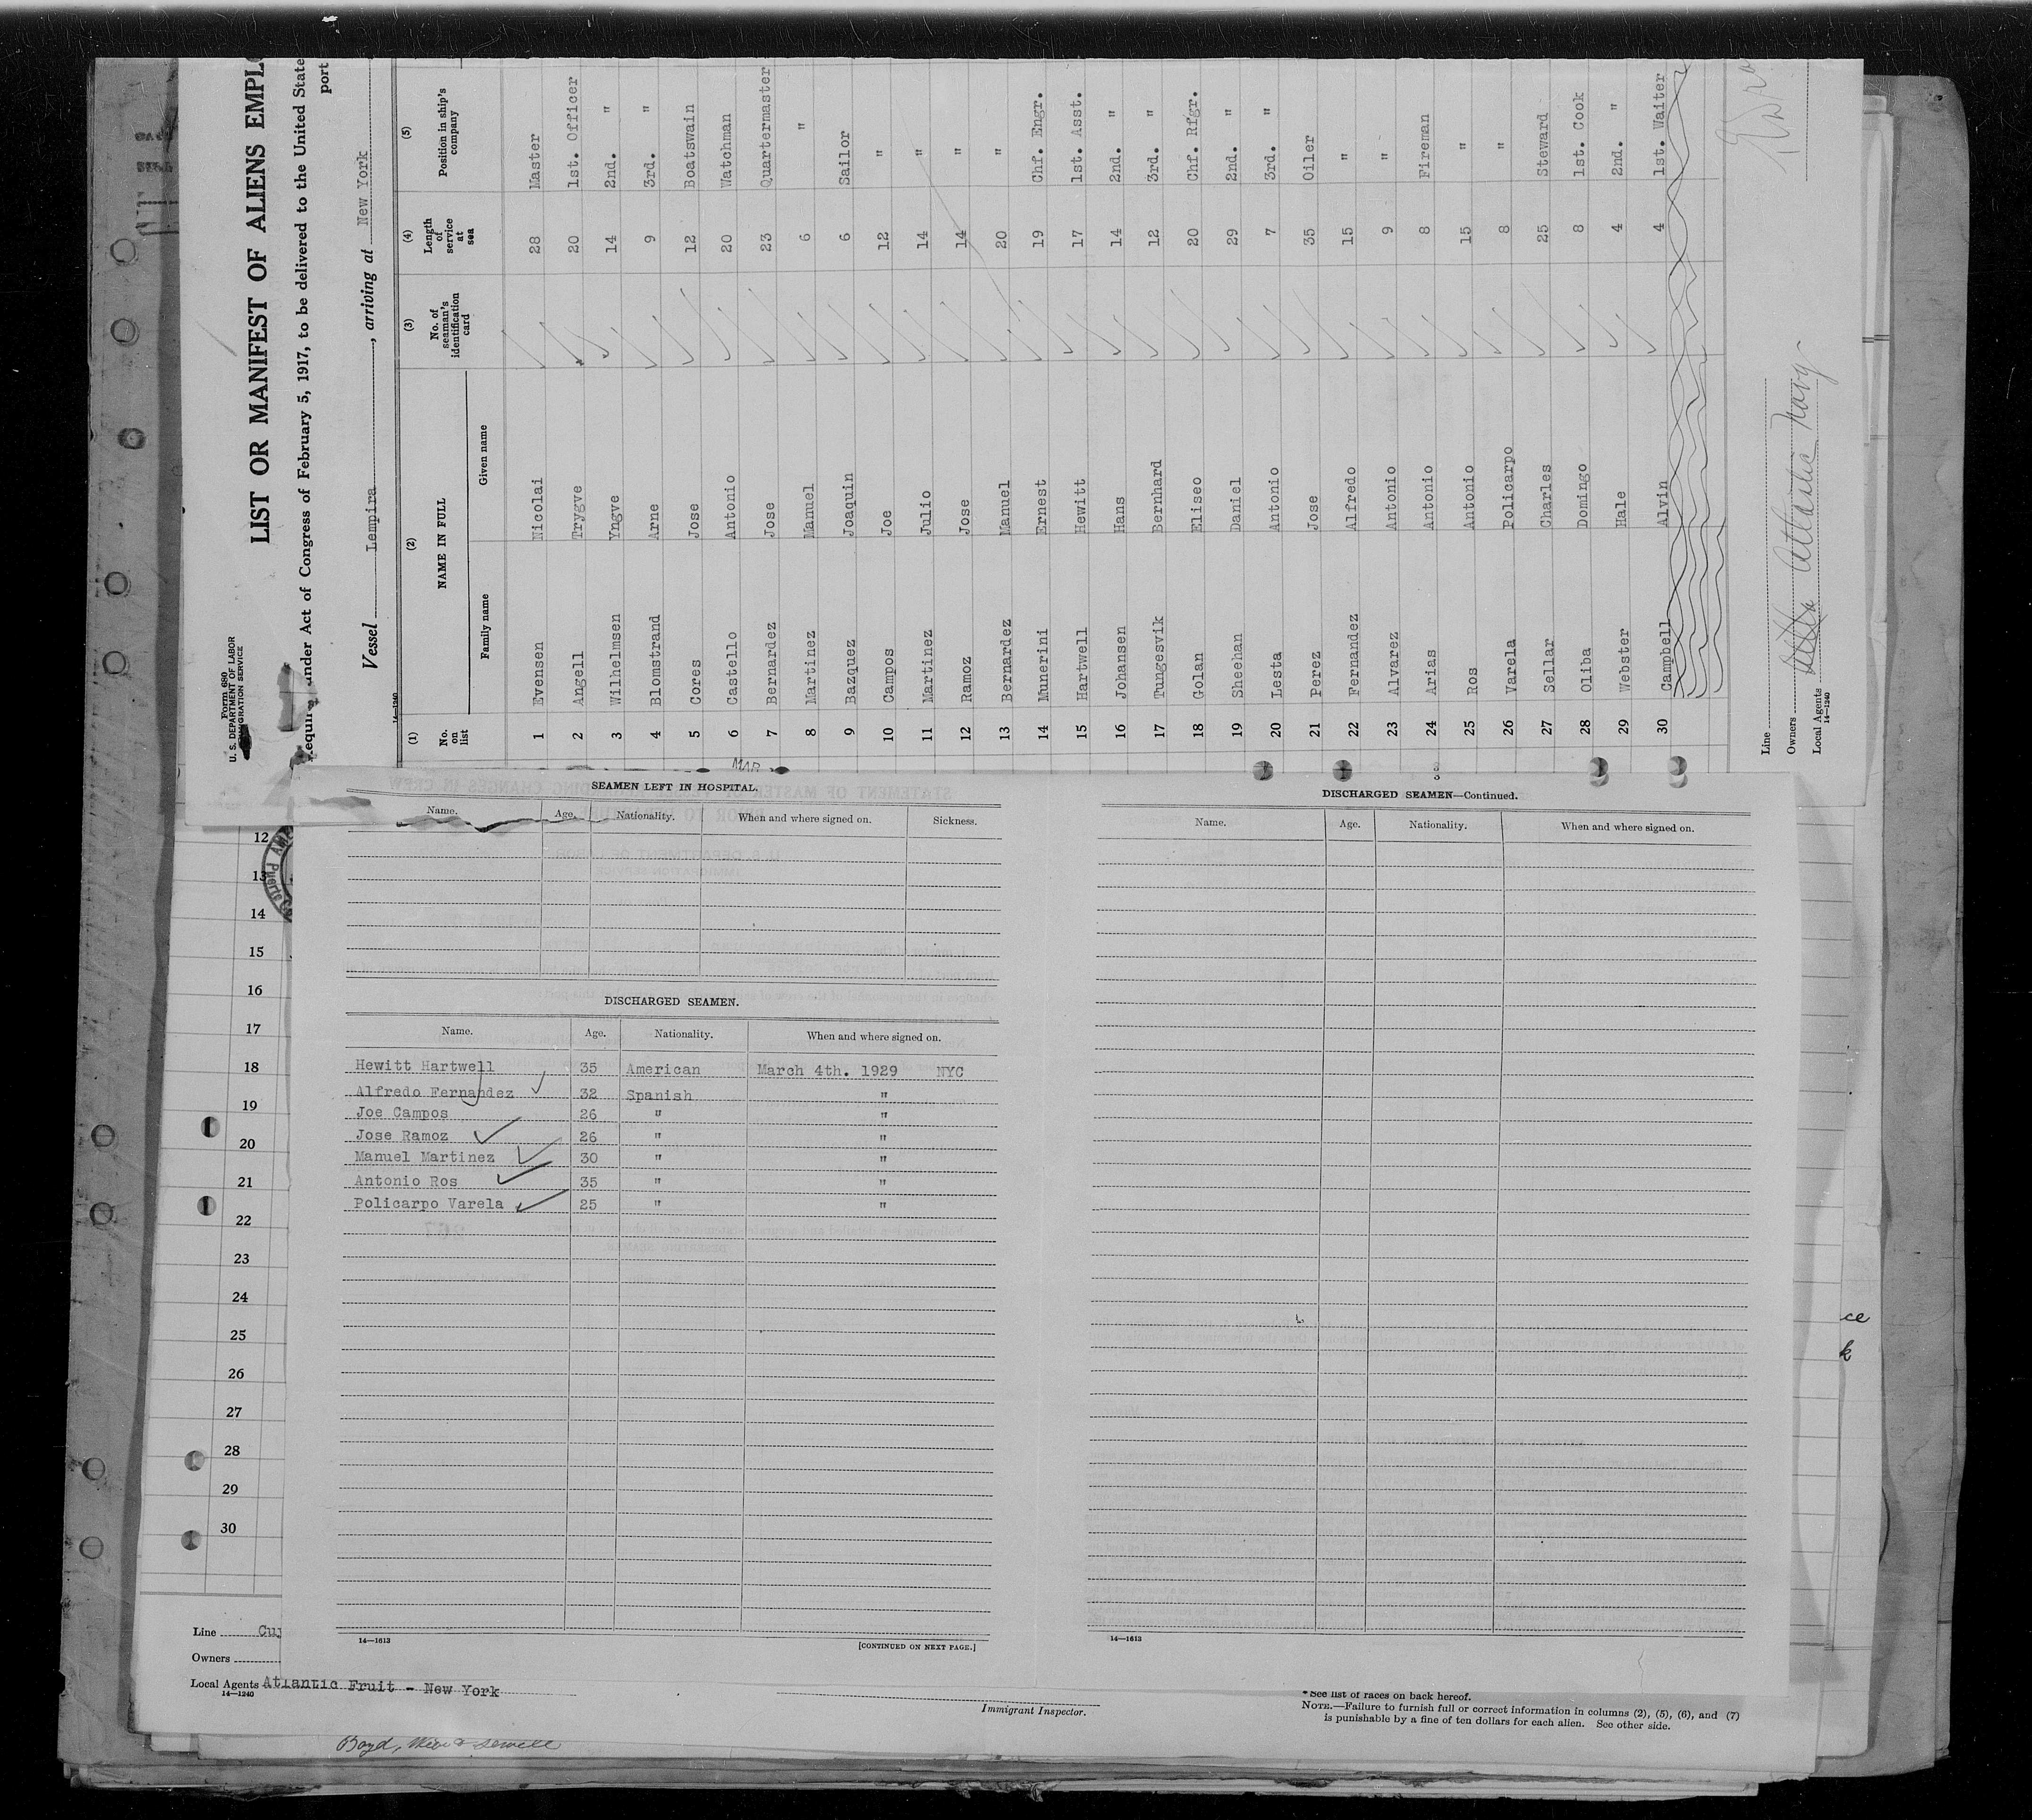 Form 680
U. S. DEPARTMENT OF LABOR
IMMIGRATION SERVICE
LIST OR MANIFEST OF ALIENS EMPLO
under Act of Congress of February 5, 1917, to be delivered to the United State
port
Vessel Lempira, arriving at New York
14—1240
(1) (2) (3) (4) (5)
No. on list NAME IN FULL No. of seaman's identification card Length of service at sea Position in ship's company
Family name Given name
1 Evensen Nicolai 28 Master
2 Angell Trygve 20 1st. Officer
3 Wilhelmsen Yngve 14 2nd. "
4 Blomstrand Arne 9 3rd. "
5 Cores Jose 12 Boatswain
6 Castello Antonio 20 Watchman
7 Bernardez Jose 23 Quartermaster
8 Martinez Manuel 6 "
9 Bazquez Joaquin 6 Sailor
10 Campos Joe 12 "
11 Martinez Julio 14 "
12 Ramoz Jose 14 "
13 Bernardez Manuel 20 "
14 Munerini Ernest 19 Chf. Engr.
15 Hartwell Hewitt 17 1st. Asst.
16 Johansen Hans 14 2nd. "
17 Tungesvik Bernhard 12 3rd. "
18 Golan Eliseo 20 Chf. Rfgr.
19 Sheehan Daniel 29 2nd. "
20 Lesta Antonio 7 3rd. "
21 Perez Jose 35 Oiler
22 Fernandez Alfredo 15 "
23 Alvarez Antonio 9 "
24 Arias Antonio 8 Fireman
25 Ros Antonio 15 "
26 Varela Policarpo 8 "
27 Sellar Charles 25 Steward
28 Oliba Domingo 8 1st. Cook
29 Webster Hale 4 2nd. "
30 Campbell Alvin 4 1st. Waiter
Line
Owners
Local Agents Atlantic Navg
14—1240
MAR
SEAMEN LEFT IN HOSPITAL.
Name. Age. Nationality. When and where signed on. Sickness.
DISCHARGED SEAMEN.
Name. Age. Nationality. When and where signed on.
Hewitt Hartwell 35 American March 4th. 1929 NYC
Alfredo Fernandez 32 Spanish "
Joe Campos 26 " "
Jose Ramoz 26 " "
Manuel Martinez 30 " "
Antonio Ros 35 " "
Policarpo Varela 25 " "
14—1613 [CONTINUED ON NEXT PAGE.]
DISCHARGED SEAMEN—Continued.
Name. Age. Nationality. When and where signed on.
14—1613
12
13
14
15
16
17
18
19
20
21
22
23
24
25
26
27
28
29
30
ce
k
Line
Owners
Local Agents Atlantic Fruit - New York
14—1240
Immigrant Inspector.
* See list of races on back hereof.
NOTE.—Failure to furnish full or correct information in columns (2), (5), (6), and (7)
is punishable by a fine of ten dollars for each alien. See other side.
Boyd,